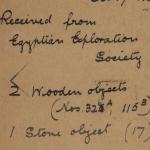 Received from
Egyptian Exploration
Society
2 Wooden objects
(Nos. 323A, 115B)
1 Stone object (17)